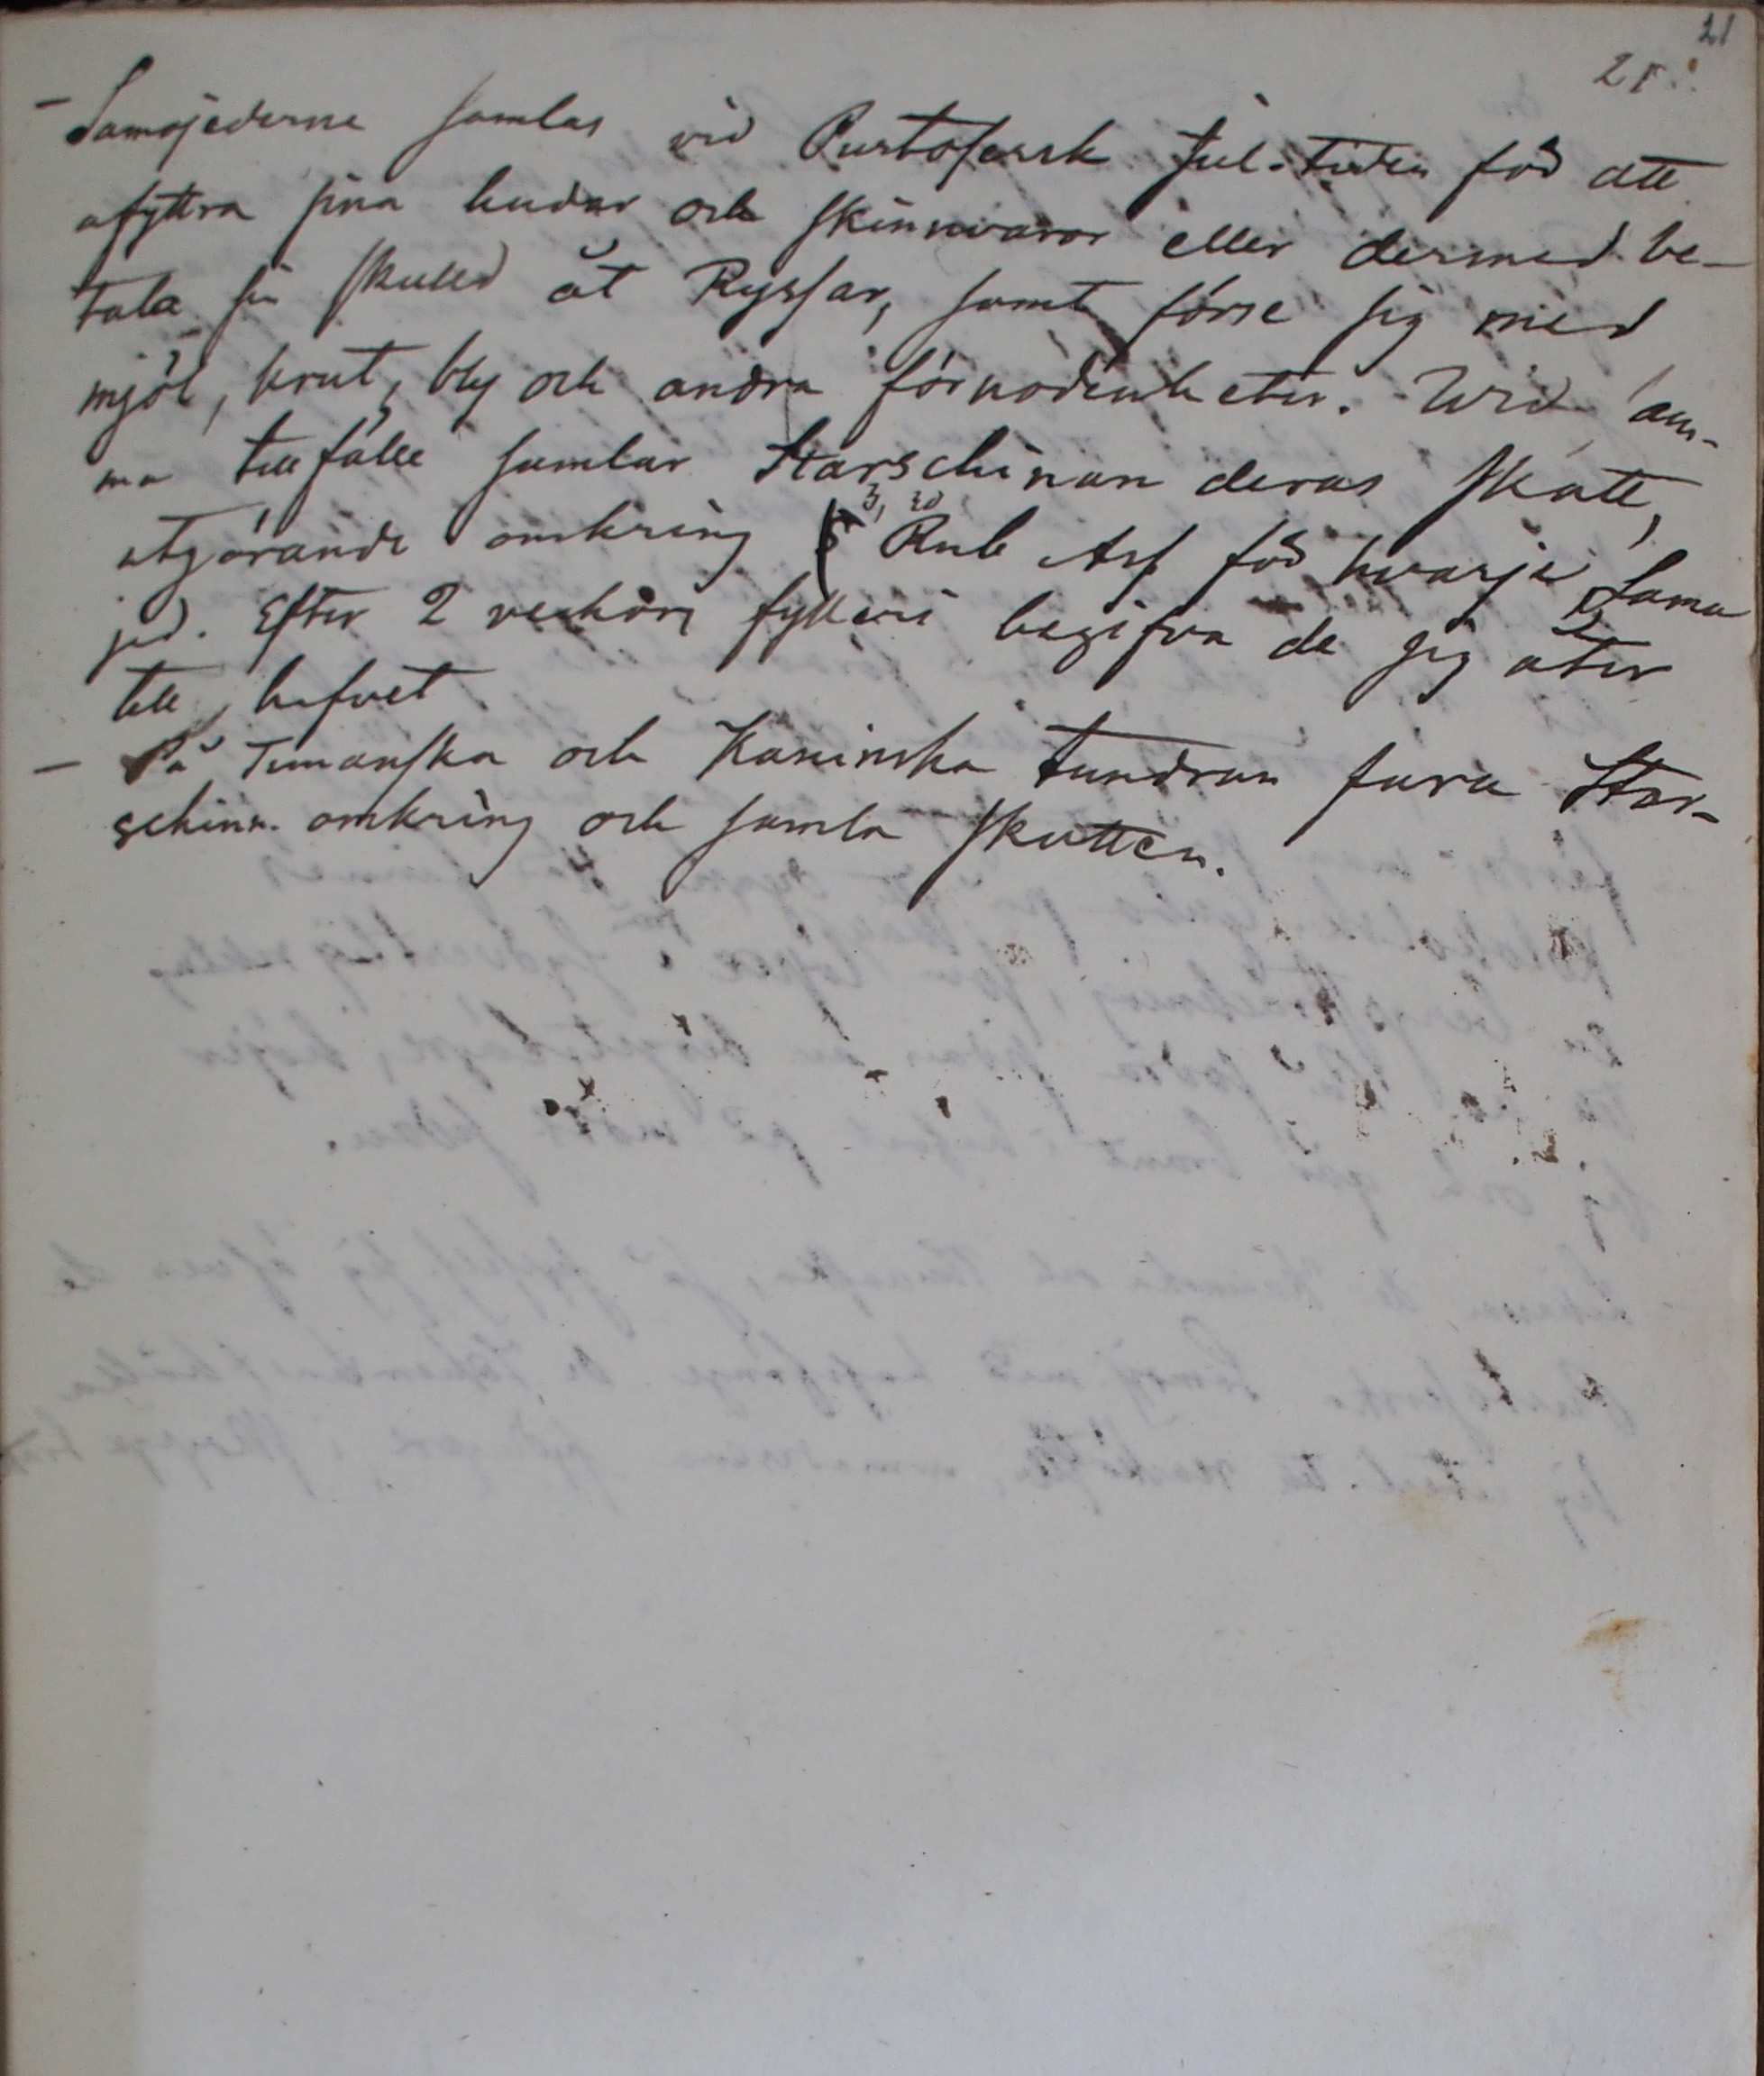 21
21.
– Samojederne samlas vid Pustosersk Jul-tiden för att
afyttra sina hudar och skinnvaror eller dermed be-
tala sin skuld åt Ryssar, samt förse sig med
mjöl, krut, bly och andra förnödenheter. Wid
ma tillfälle samlar Starschinan deras skatt,
utgörande omkring Rub Ass för hvarje Samo
jed. Efter 2 veckors fylleri begifva de sig åter
till hafvet.
– På Timanska och Kaninska tundran fara Star-
schinn. omkring och samla skatten.